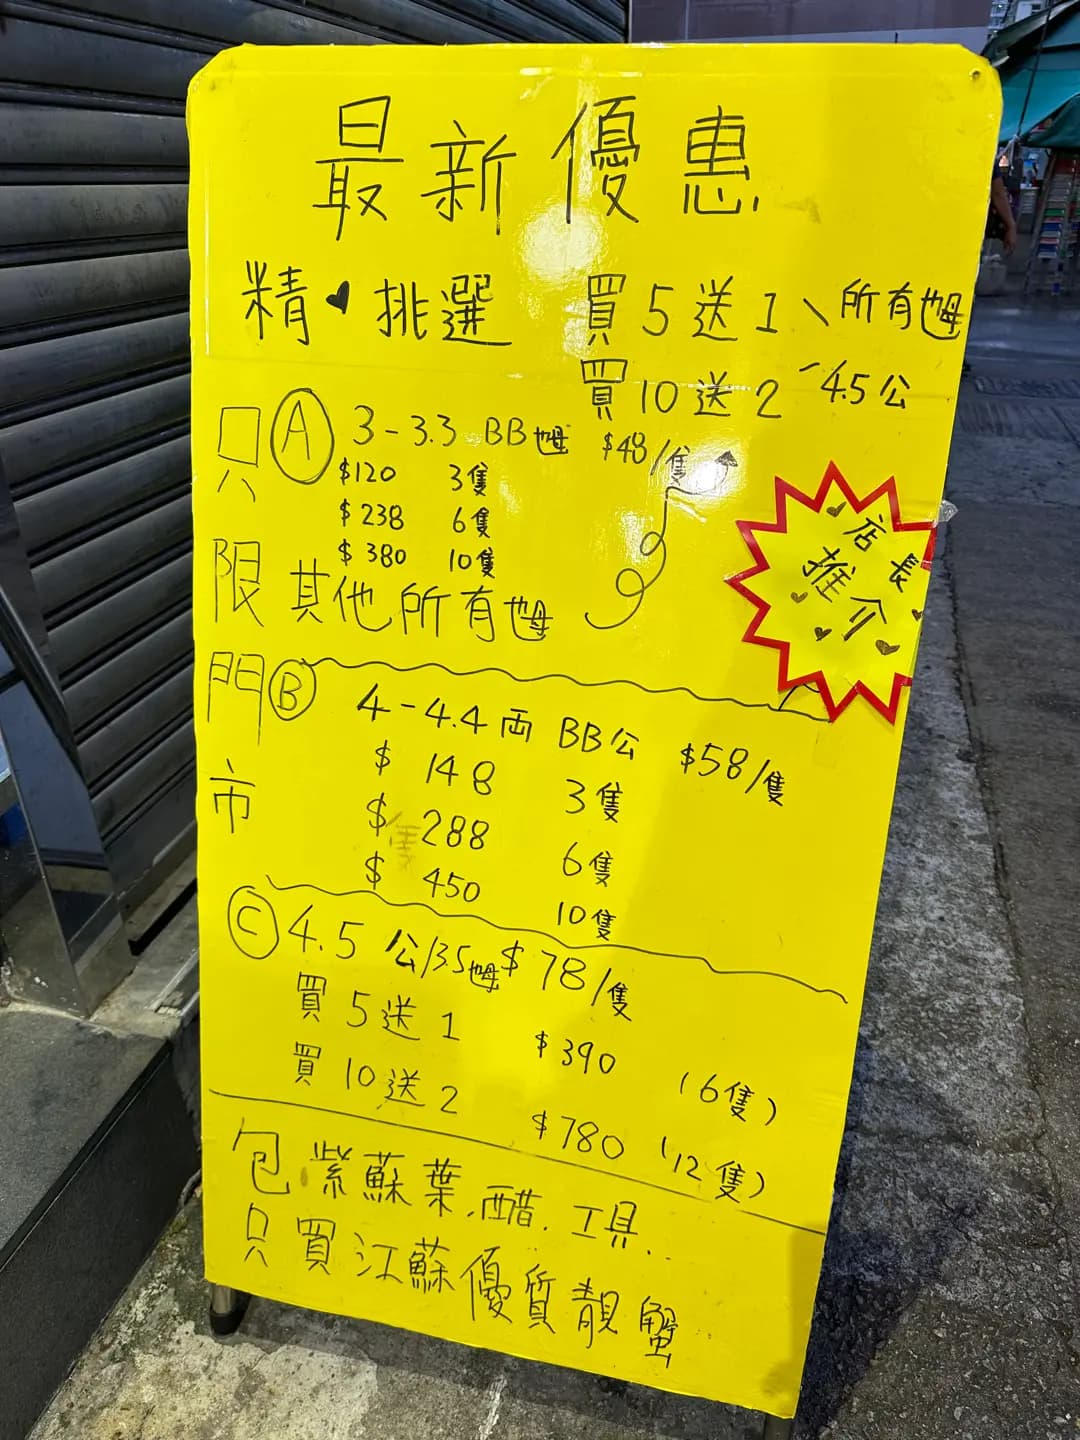 最新優惠
精♥挑選
買5送1、所有乸
買10送2 4.5公
只限門市
Ⓐ 3-3.3 BB乸 $48/隻
$120 3隻
$238 6隻
$380 10隻
其他所有乸
店長
推介
Ⓑ 4-4.4両 BB公 $58/隻
$148 3隻
$288 6隻
$450 10隻
Ⓒ 4.5公/3.5乸 $78/隻
買5送1 $390 (6隻)
買10送2 $780 (12隻)
包紫蘇葉.醋.工具..
只買江蘇優質靚蟹